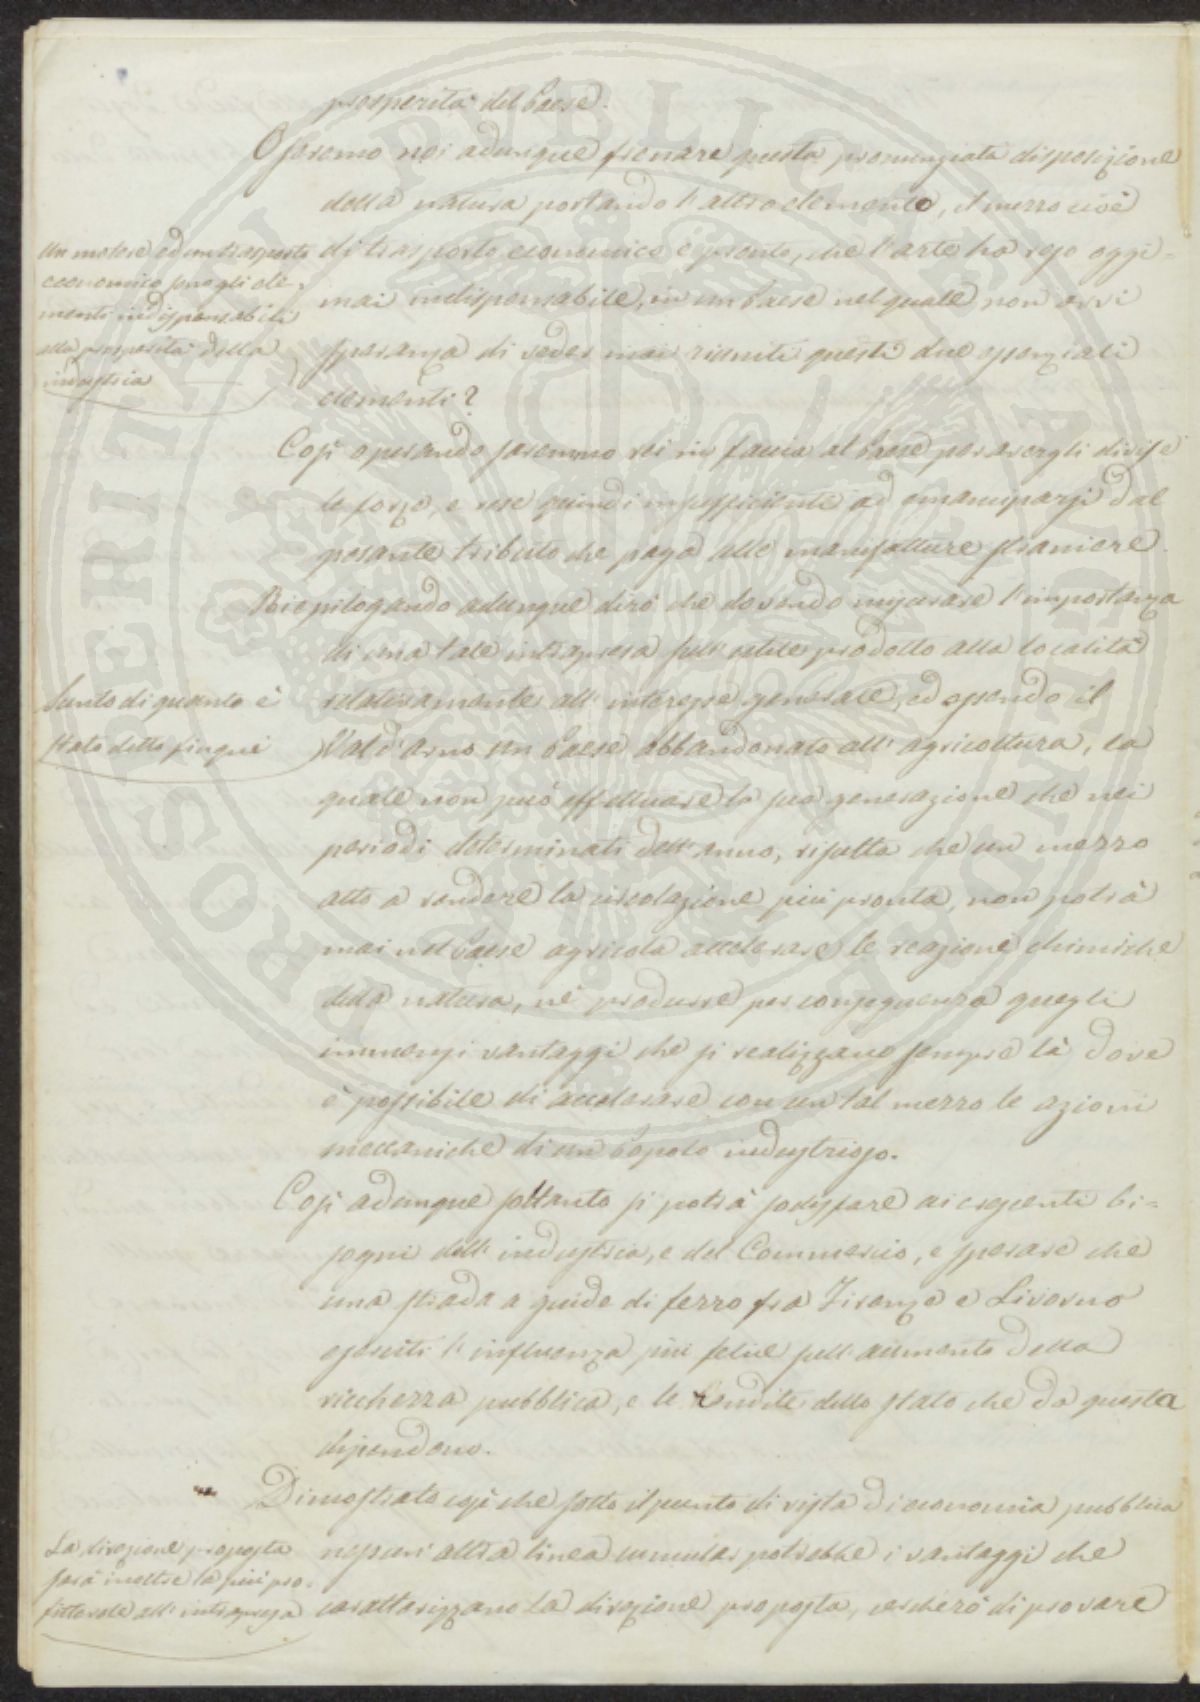 prosperità del Paese.
Oseremo noi adunque frenare questa pronunziata disposizione
della natura portando l'altro elemento, il mezzo cioè
di trasporto economico e pronto, che l'arte ha reso oggi=
mai indispensabile, in un Paese nel quale non avvi
speranza di veder mai riuniti questi due essenziali
elementi?
Un motore ed un trasporto
economico sono gli ele-
menti indispensabili
alla prosperità della
industria
Così operando saremmo rei in faccia al Paese per avergli divise
le forze, e rese quindi insufficienti ad emanciparsi dal
pesante tributo che paga alle manifatture straniere.
Riepilogando adunque dirò che dovendo misurare l'importanza
di una tale intrapresa sull'utile prodotto alla località
relativamente all'interesse generale, ed essendo il
Val d'arno un Paese abbandonato all'agricoltura, la
quale non può effettuare la sua generazione che nei
periodi determinati dell'anno, risulta che un mezzo
atto a rendere la circolazione più pronta, non potrà
mai nel Paese agricola accelerare le reazione chimiche
della natura, nè produrre per conseguenza quegli
immensi vantaggi che si realizzano sempre là dove
è possibile di accelerare con un tal mezzo le azioni
meccaniche di un Popolo industrioso.
Sunto di quanto è
stato detto finqui
Così adunque soltanto si potrà sodisfare ai crescenti bi=
sogni dell'industria, e del Commercio, e sperare che
una strada a guide di ferro fra Firenze e Livorno
eserciti l'influenza più felice sull'aumento della
ricchezza pubblica, e le Rendite dello stato che da questa
dipendono.
Dimostrato così che sotto il punto di vista di economia pubblica
nessun'altra linea cumular potrebbe i vantaggi che
caratterizzano la direzione proposta, cercherò di provare
La direzione proposta
sarà inoltre la più pro-
fittevole all'intrapresa